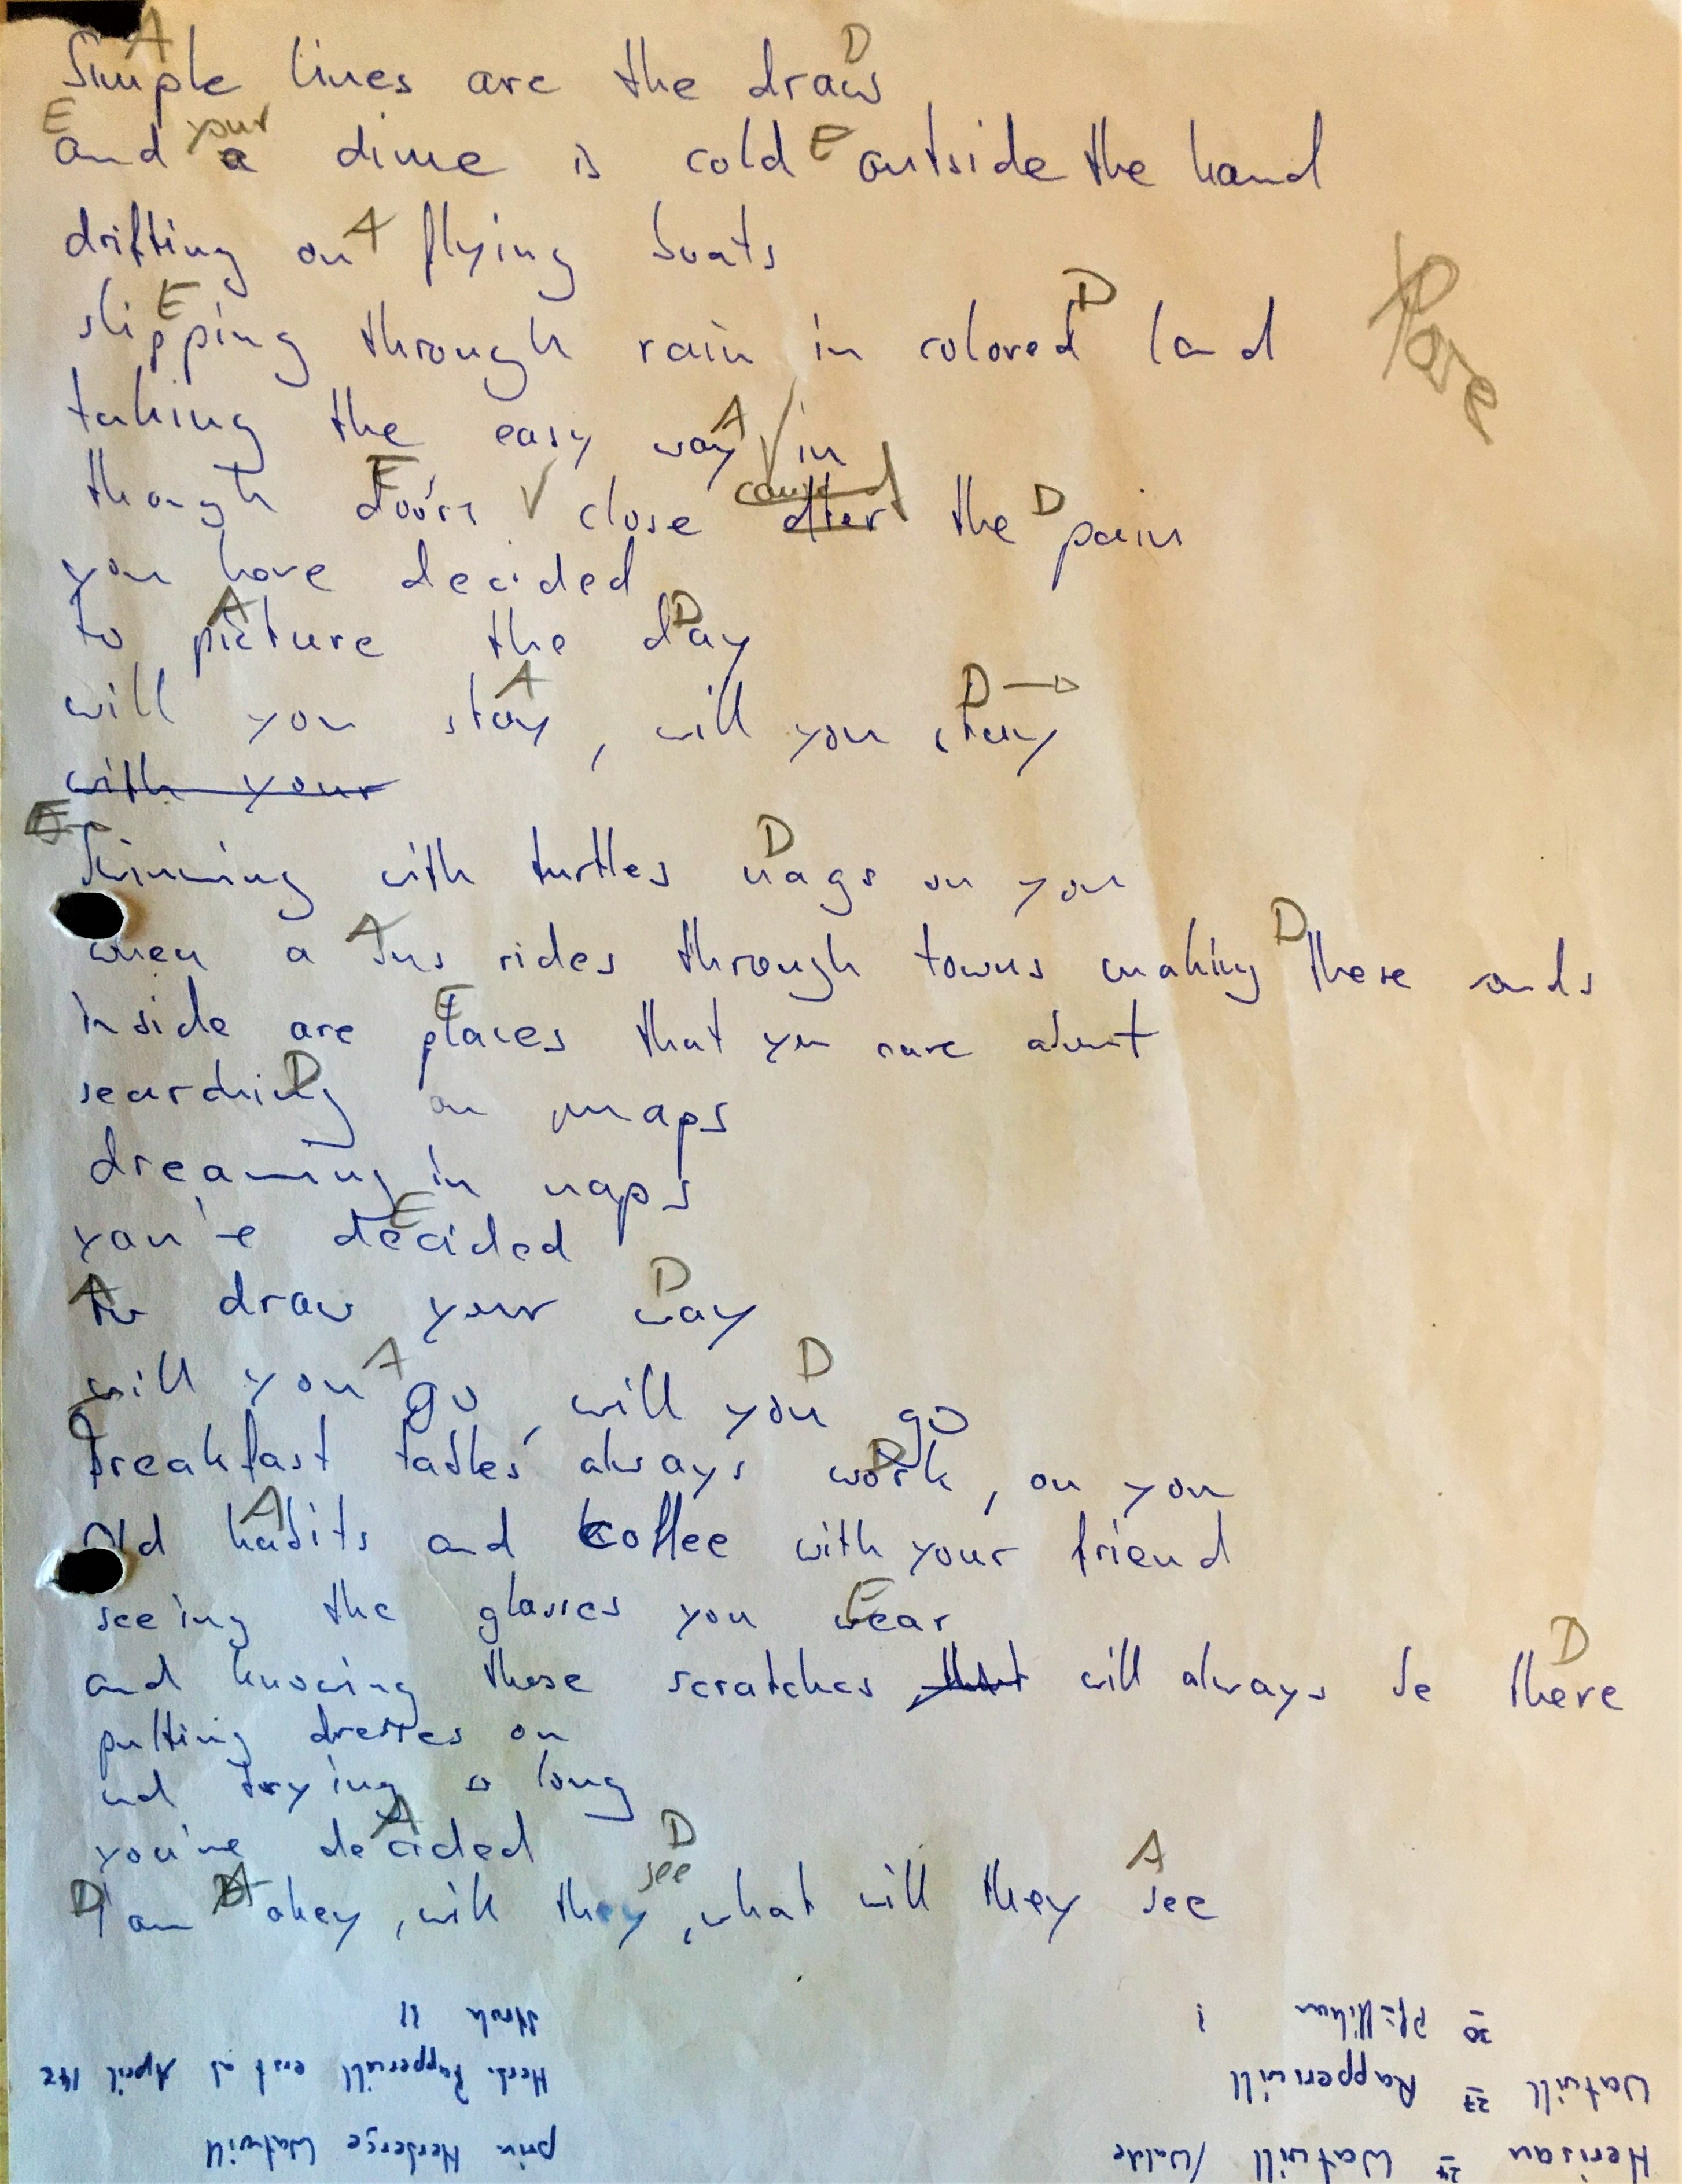 A D
Simple lines are the draw
E your E
and a dime is cold outside the hand
A
drifting on flying boats
E D
slipping through rain in colored land
A
taking the easy way in
E D
though doors close after the pain
you have decided
A D
to picture the day
A D →
will you stay, will you stay
with your
E D
Swimming with turtles nags on you
A D
when a bus rides through towns making these ands
E
inside are places that you care about
D
searching on maps
dreaming in naps
E
you've decided
A D
to draw your way
A D
will you go, will you go
D
breakfast tables always work, on you
A
old habits and coffee with your friend
E
seeing the glasses you wear
D
and knowing these scratches that will always be there
putting dresses on
and trying a long
A
you've decided
D A D A
I am okey, will they see, what will they see
Herisau 24 Watwill /Walde
Watwill 27 Rapperswill
30 Pfäffikon
priv Herberge Watwill
Herb. Rapperswill erst ab April 142